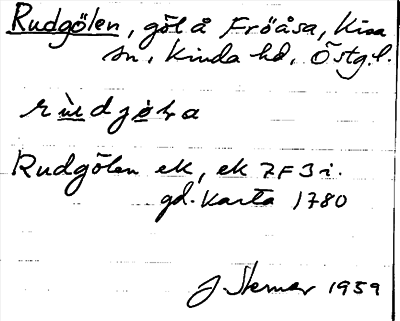 Rudgölen, göl å Fröåsa, Kisa
sn, Kinda hd, Östg.l.
Rudgölen ek, ek 7F3i.
gd. karta 1780
J Sterner 1959